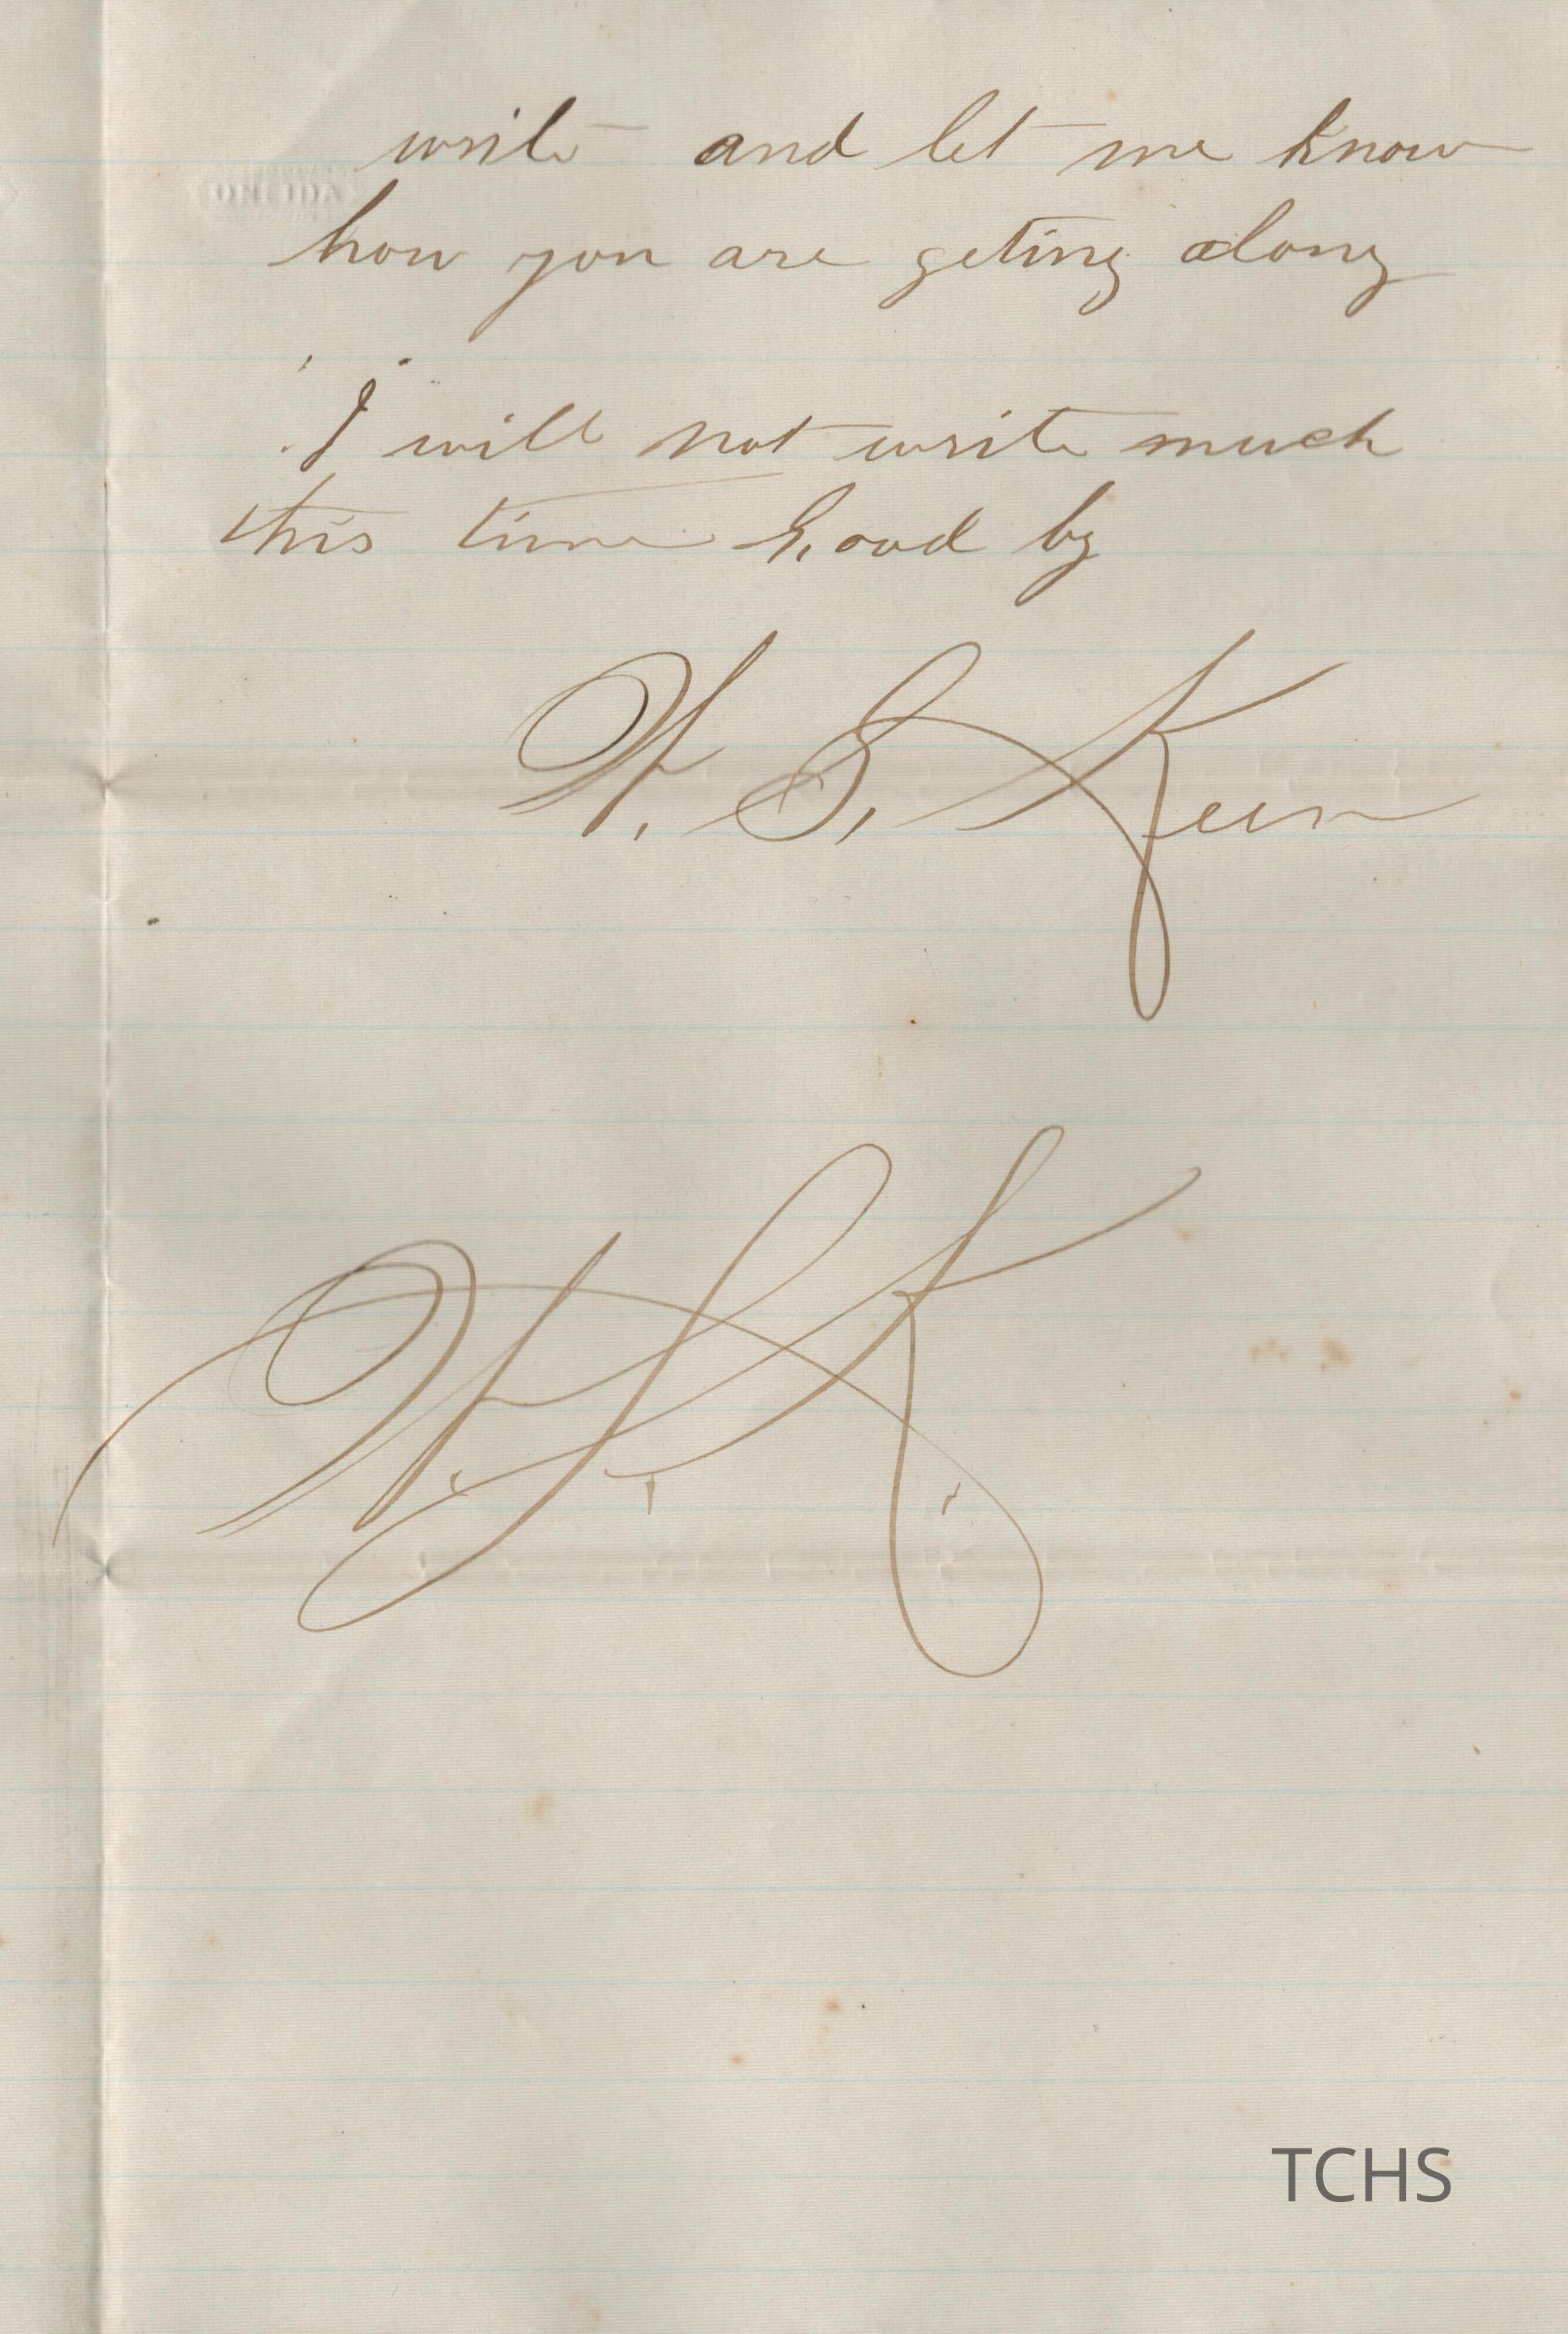 ONEIDA
write and let me know
how you are geting along
I will not write much
this time Good by
H. S. Keen
H. S. K.
TCHS